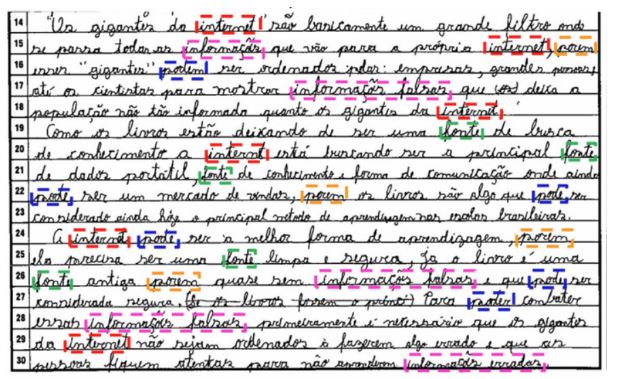 14 Us gigantes da internet são basicamente um grande filtro onde
15 se passa todas as informaçõs que vão para a própria internet, porem
16 esses "gigantes" podem ser ordenados pelas: empresas, grandes pessoas,
17 até os cientistas para mostrar informaçõs falsas, que (os) deixa a
18 população não tão informada quanto os gigantes da internet.
19 Como os livros estão deixando de ser uma fonte de busca
20 de conhecimento a internet está buscando ser a principal fonte
21 de dados portatil, fonte de conhecimento e forma de comunicação onde ainda
22 pode ser um mercado de vendas, porem os livros são algo que pode ser
23 considerado ainda hoje o principal metodo de aprendizagem nas escolas brasileiras.
24 A internet pode ser a melhor forma de aprendizagem, porem,
25 ela precisa ser uma fonte limpa e segura, ja o livro é uma
26 fonte antiga porem quase sem informaçõs falsas e que pode ser
27 considerada segura. (Se os livros fossem o princi) Para poder combater
28 essas informaçõs falsas, primeiramente é necessário que os gigantes
29 da internet não sejam ordenados à fazerem algo errado e que as
30 pessoas fiquem atentas para não aprenderem informaçõs erradas.